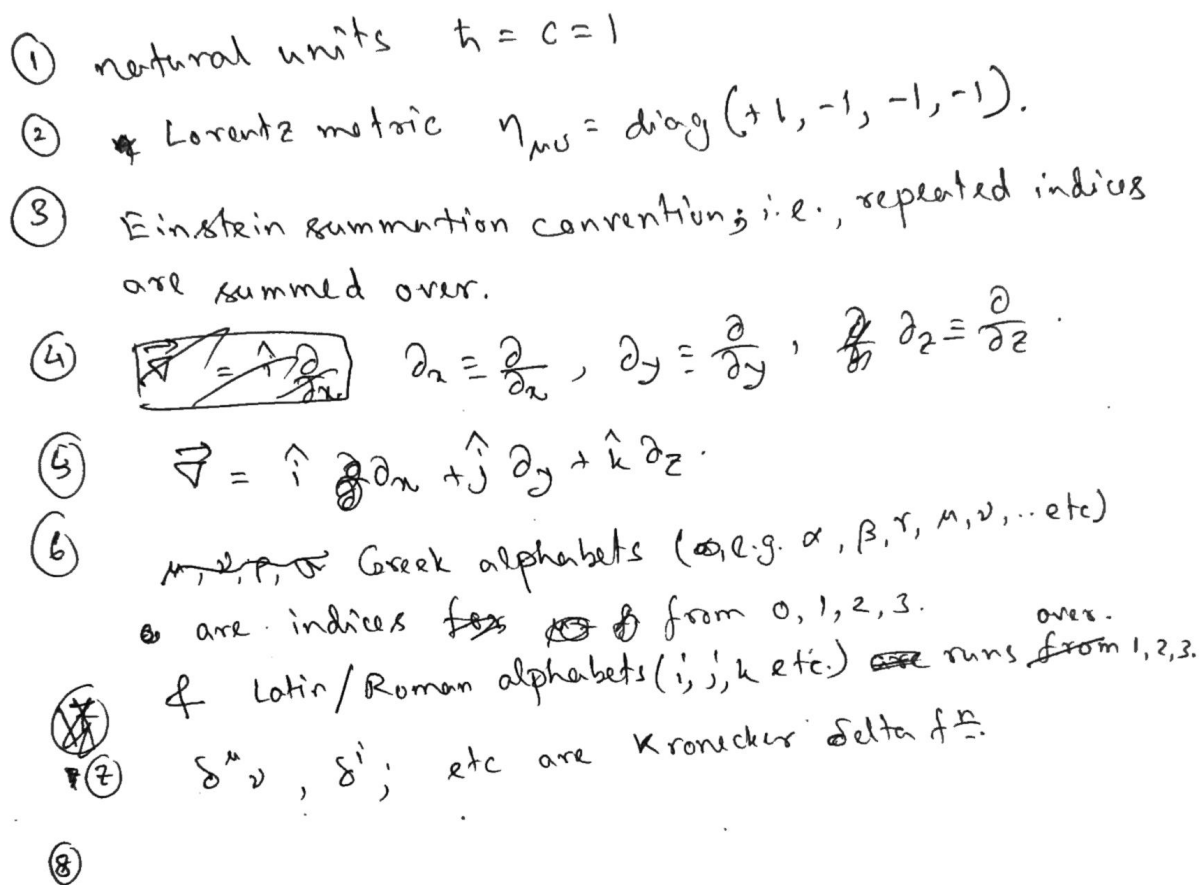 ① natural units ħ = c = 1
② Lorentz metric η_μν = diag (+1, -1, -1, -1).
③ Einstein summation convention; i.e., repeated indices
are summed over.
④ ∂x ≡ ∂/∂x , ∂y ≡ ∂/∂y , ∂z ≡ ∂/∂z .
⑤ ∇⃗ = î ∂x + ĵ ∂y + k̂ ∂z .
⑥ Greek alphabets (e.g. α, β, γ, μ, ν, .. etc)
are indices from 0, 1, 2, 3.
& Latin/Roman alphabets (i, j, k etc.) runs over. 1, 2, 3.
⑦ δ^μ_ν , δ^i_j etc are Kronecker delta fn.
⑧